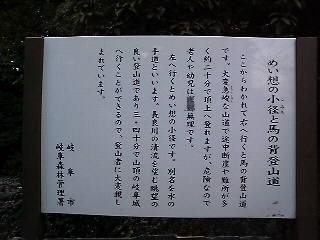 めい想の小径と馬の背登山道
ここからわかれて右へ行くと馬の背登山道
です。大変急峻な山道で途中断崖や難所が多
く約二十分で頂上へ登れますが、危険なので
老人や幼児は無理です。
左へ行くとめい想の小径です。別名を水の
手道といいます。長良川の清流を望む眺望の
良い登山道であり三・四十分で山頂の岐阜城
へ行くことができるので、登山者に大変親し
まれています。
岐阜市
岐阜森林管理署